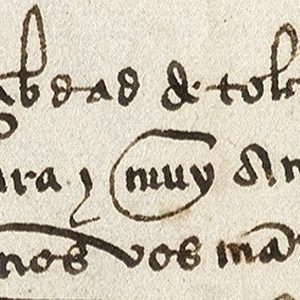 abdad de tole
ara y muy An
nos vos man